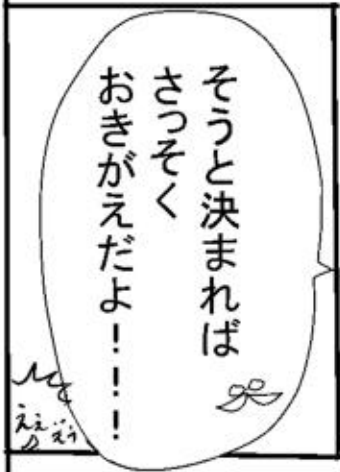 そうと決まれば
さっそく
おきがえだよ！！！